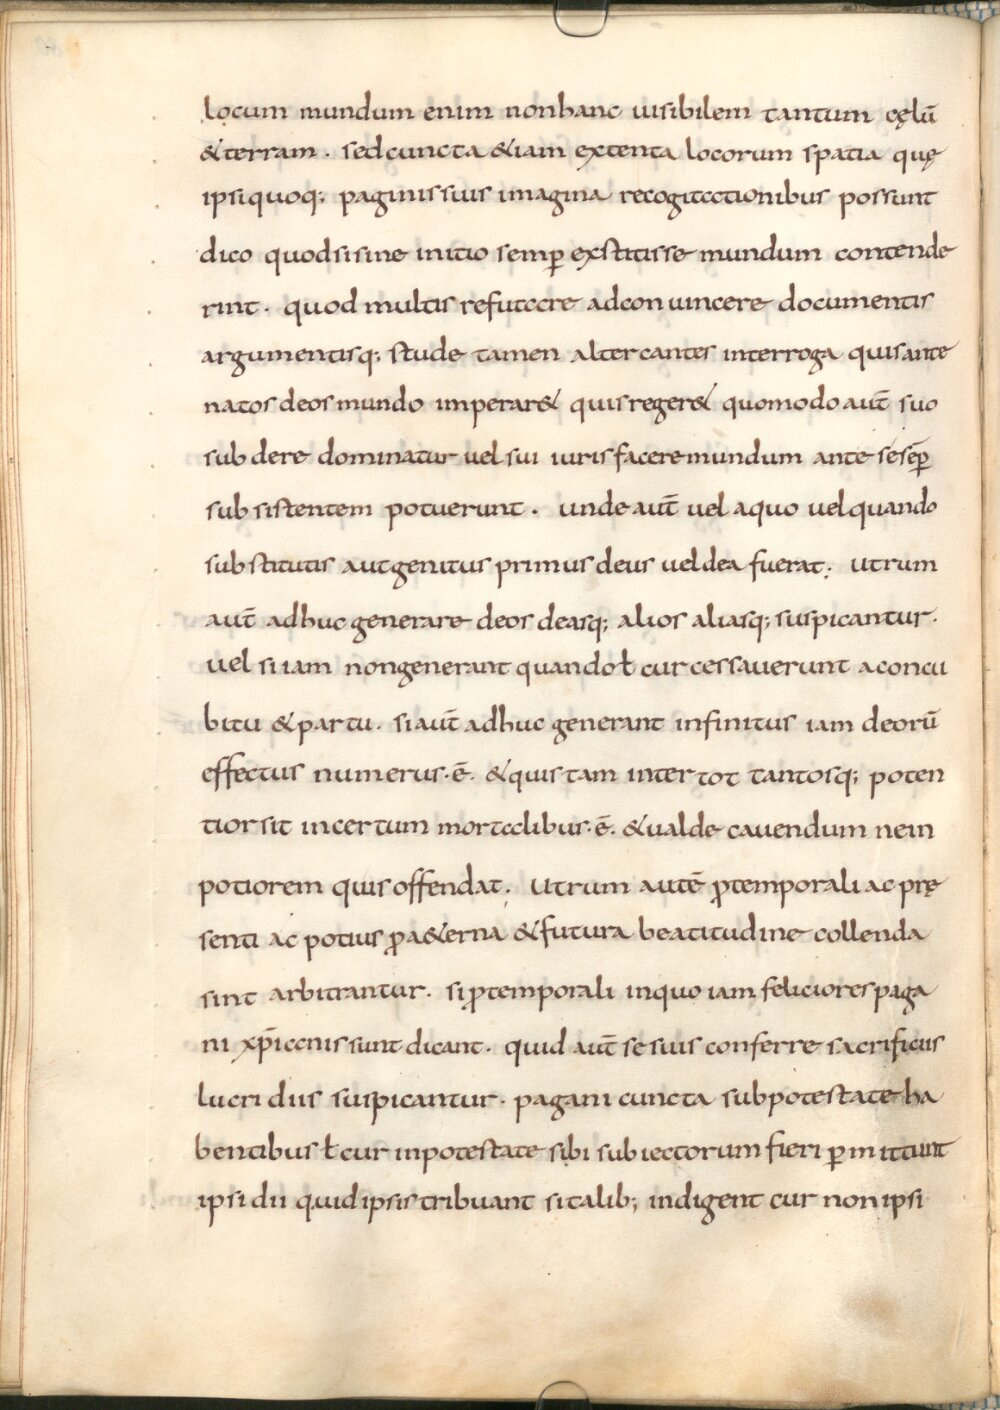 locum mundum enim nonhanc uisibilem tantum cęlū
&terram · sedcuncta &iam extenta locorum spatia quę
ipsiquoq; paginissuis imagina recogitationibus possunt
dico quodsisine initio semꝑ exstitisse mundum contende
rint · quod multis refutare adconuincere documentis
argumentisq; stude tamen altercantes interroga quisante
natos deos mundo imperar& quisreger& quomodo aut̄ suo
subdere dominatur uel sui iurisfacere mundum ante sesēꝑ
subsistentem potuerunt · unde aut̄ uel aquo uelquando
substitutis autgenitus primus deus ueldea fuerat; utrum
aut̄ adhuc generare deos deasq; alios aliasq; suspicantur ·
uel siiam nongenerant quandoł cur cessauerunt aconcu
bitu &partu · siaut̄ adhuc generant infinitus iam deorū
effectus numerus · ē · &quis tam inter tot tantosq; poten
tiorsit incertum mortalibus · ē · &ualde cauendum nein
potiorem quis offendat; utrum autē ꝓtemporali ac prę
senti ac potius ꝓa&erna &futura beatitudine collenda
sint arbitrantur · siꝓtemporali inquo iam feliciores paga
ni xp̄ianis sunt dicant · quid aut̄ sesuis conferre sacrificiis
lucri diis suspicantur · pagani cuncta subpotestate ha
bentibus ł cur inpotestate sibi subiectorum fieri ꝑmittunt
ipsi dii quidipsis tribuant sitalib; indigent cur non ipsi